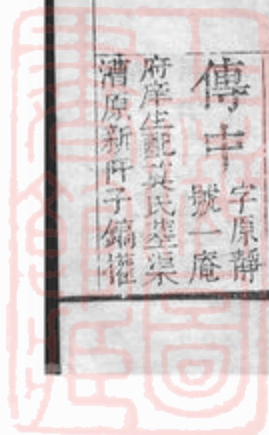 傳中
字原靜
號一庵
府庠生配黃氏塟渠
漕原新阡子鎬權